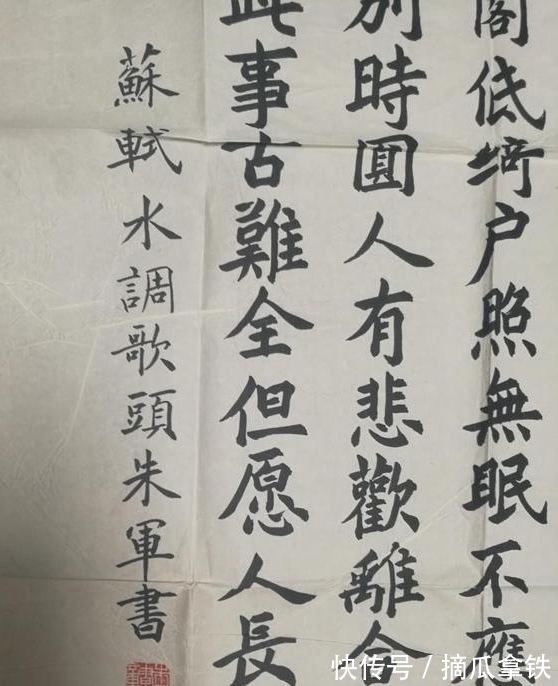 閣低綺户照無眠不應
别時圓人有悲歡離合
此事古難全但愿人長
蘇軾水調歌頭朱軍書
快传号 / 摘瓜拿铁